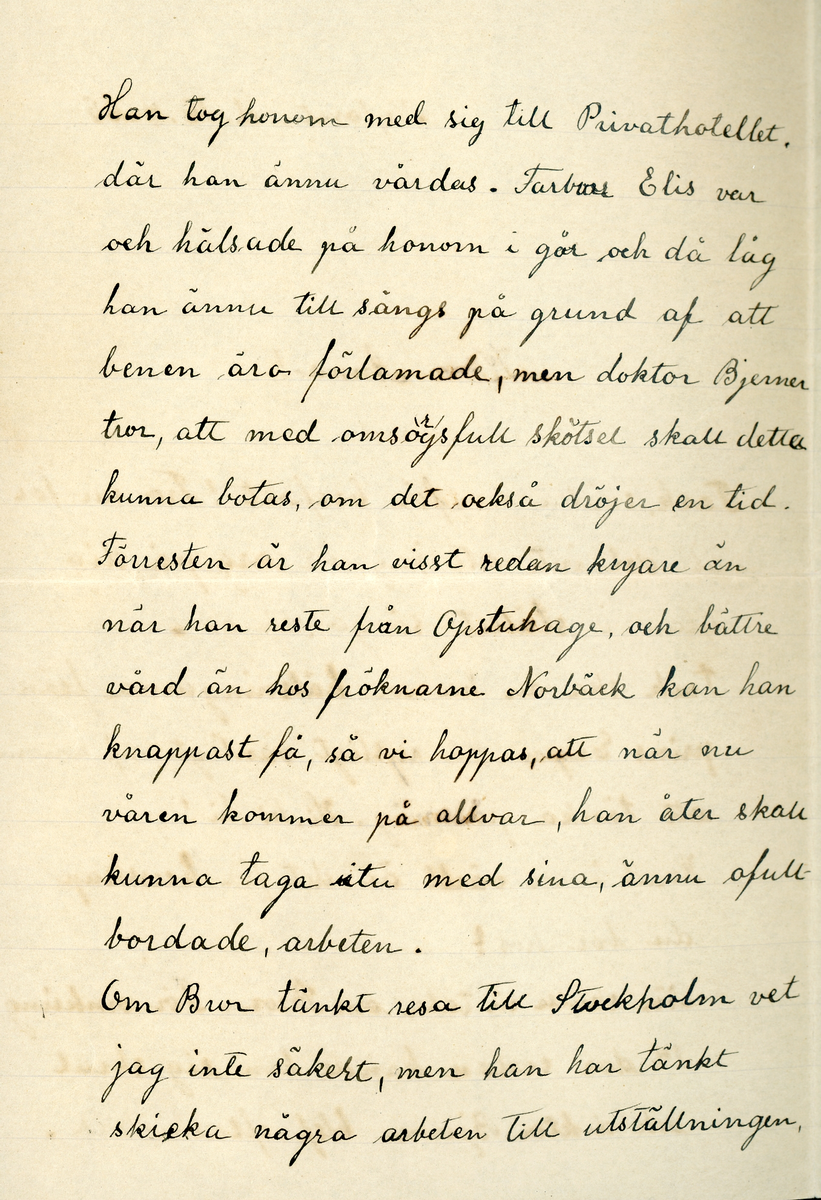 Han tog honom med sig till Privathotellet,
där han ännu vårdas. Farbror Elis var
och hälsade på honom i går och då låg
han ännu till sängs på grund af att
benen äro förlamade, men doktor Bjerner
tror, att med omsorgsfull skötsel skall detta
kunna botas, om det också dröjer en tid.
Förresten är han visst redan kryare än
när han reste från Opstuhage, och bättre
vård än hos fröknarne Norbäck kan han
knappast få, så vi hoppas, att när nu
våren kommer på allvar, han åter skall
kunna taga itu med sina, ännu ofull-
bordade, arbeten.
Om Bror tänkt resa till Stockholm vet
jag inte säkert, men han har tänkt
skicka några arbeten till utställningen,